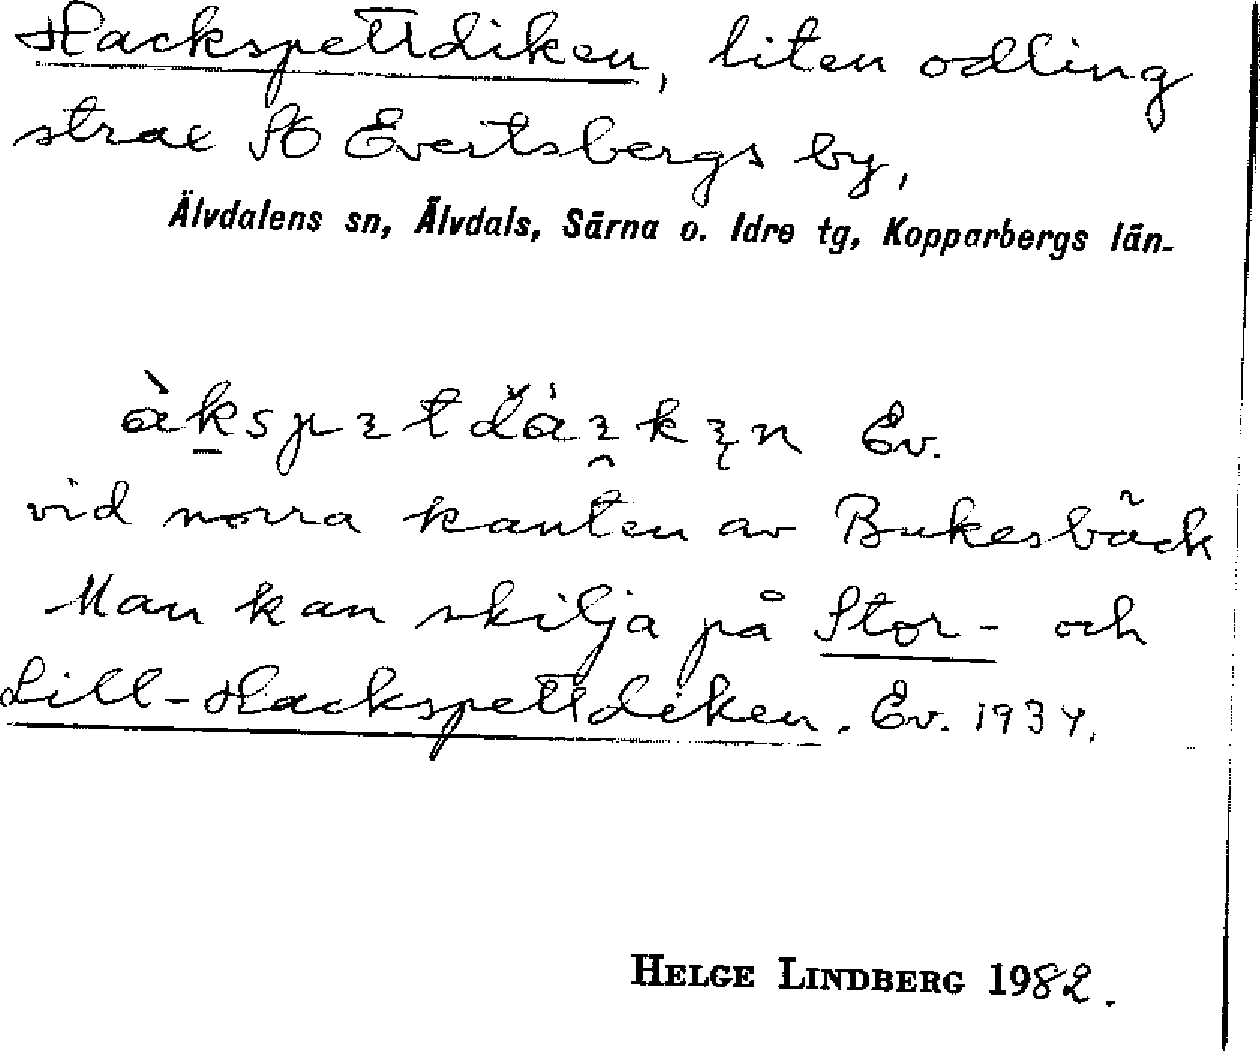 Hackspettdiken, liten odling
strax SO Evertsbergs by,
Älvdalens sn, Älvdals, Särna o. Idre tg, Kopparbergs län.
Ev.
vid norra kanten av Bukesbäck
Man kan skilja på Stor- och
Lill-Hackspettdiken. Ev. 1934.
HELGE LINDBERG 1982.